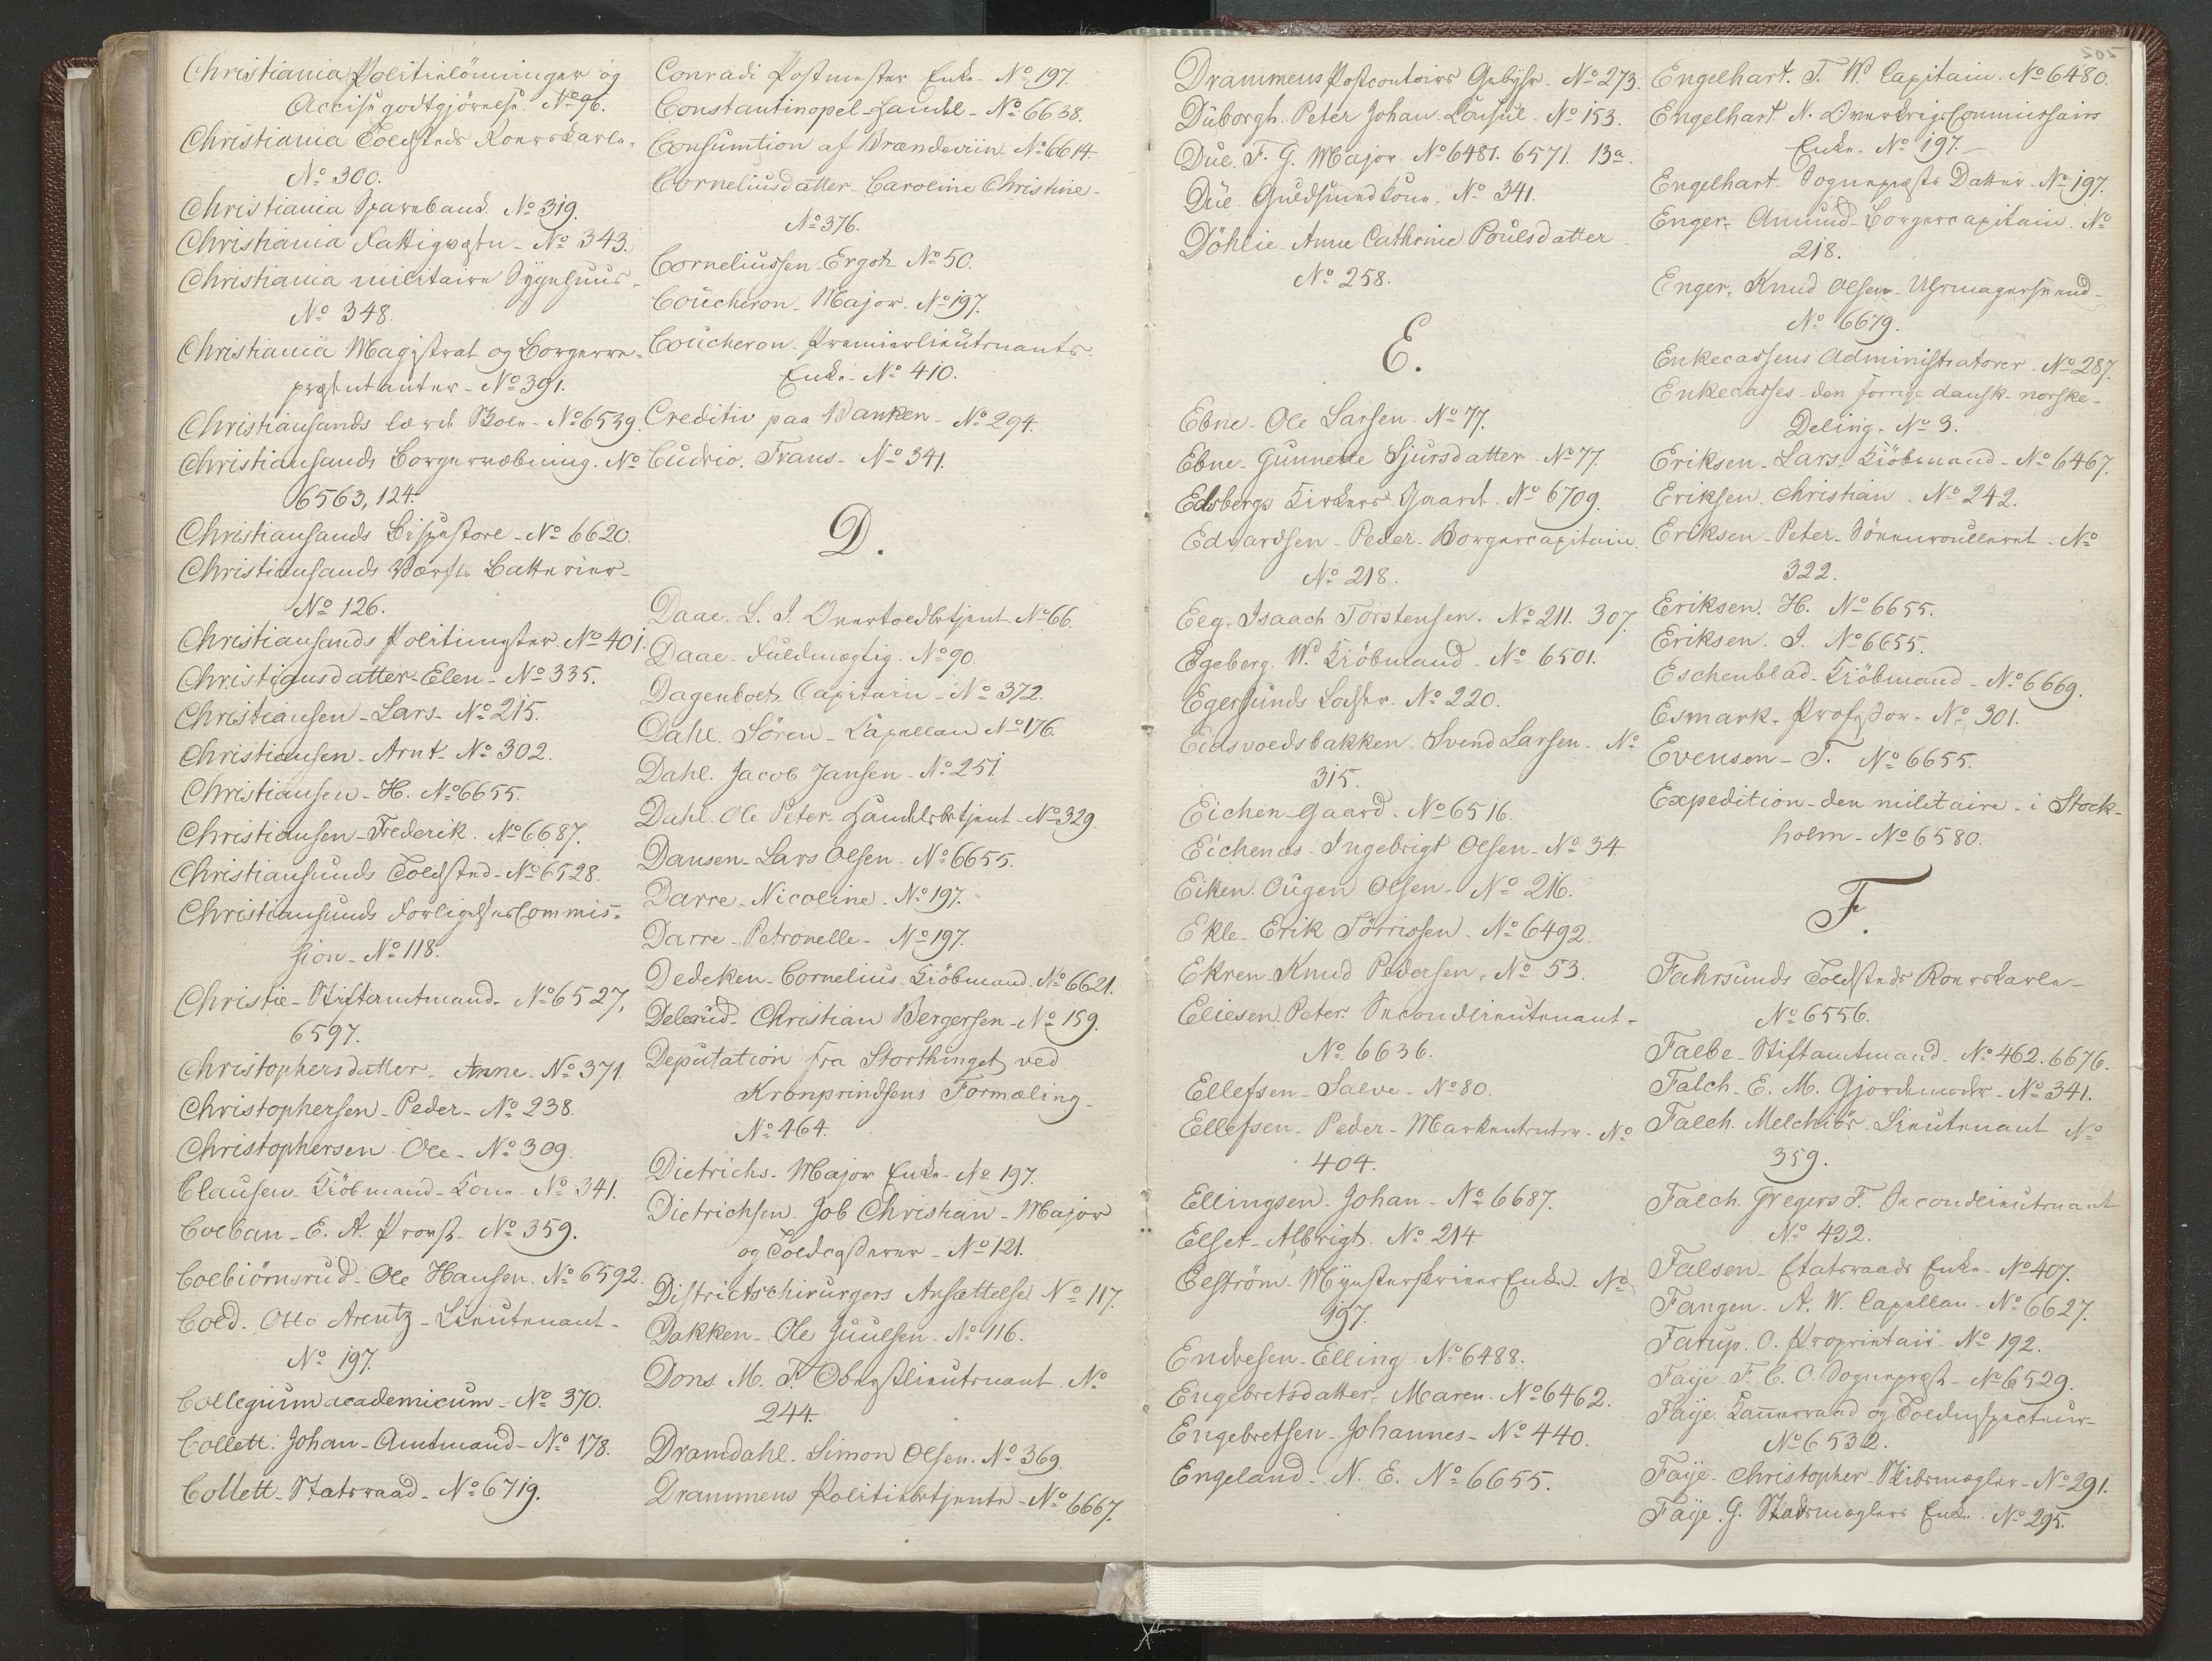 Christiania Politielönninger og
Accise godtgjörelse. No 96.
Christiania Toldsteds Roerskarle.
No 300.
Christiania Sparebank. No 319.
Christiania Fattigvæsen - No 343.
Christiania militaire Sygehuus.
No 348.
Christiania Magistrat og Borgerre-
præsentanter - No 391.
Christiansands lærde Skole - No 6539.
Christiansands Borgervæbning. No
6563, 124.
Christiansands Bispestole - No 6620.
Christiansands Værft Batterier -
No 126.
Christiansands Politimester. No 401.
Christiansdatter - Elen - No 335.
Christiansen - Lars - No 215.
Christiansen - Arnt - No 302.
Christiansen - H. No 6655.
Christiansen - Frederik. No 6687.
Christiansunds Toldsted - No 6528.
Christiansunds Forligelses Commis-
sion - No 118.
Christie - Stiftamtmand. No 6527,
6597.
Christophersdatter - Anne. No 371.
Christophersen - Peder - No 238.
Christophersen. Ole - No 309.
Clausen - Kiöbmand - Kone - No 341.
Colban - E. A. Provst - No 359.
Colbiörnsrud - Ole Hansen. No 6592.
Cold - Otto Arentz - Lieutenant -
No 197.
Collegium academicum - No 370.
Collett. Johan - Amtmand - No 178.
Collett - Statsraad - No 6719.
Conradi Postmester Enke - No 197.
Constantinopel - Handel - No 6638.
Consumtion af Brændeviin - No 6614.
Corneliusdatter - Caroline Christine -
No 376.
Corneliussen - Ergoh No 50.
Coucheron - Major. No 197.
Coucheron - Premierlieutenants
Enke - No 410.
Creditiv paa Banken - No 294.
Cudrio. Frans - No 341.
D.
Daae. L. J. Overtoldbetjent. No 66.
Daae - Fuldmægtig. No 90.
Dagenbolt Capitain - No 372.
Dahl. Sören - Capellan No 176.
Dahl. Jacob Jansen - No 251.
Dahl. Ole Peter. Handelsbetjent - No 329.
Dansen - Lars Olsen - No 6655.
Darre - Nicoline - No 197.
Darre - Petronelle - No 197.
Dedeken - Cornelius - Kiöbmand. No 6621.
Delerud - Christian Bergersen - No 159.
Deputation fra Storthinget ved
Kronprindsens Formæling -
No 464.
Dietrichs - Major Enke - No 197.
Dietrichsen. Job Christian - Major
og Toldcasserer - No 121.
Districtschirurgers Ansættelse No 117.
Dokken - Ole Juulsen - No 116.
Dons. M. F. Oberstlieutenant No
244.
Dramdahl - Simon Olsen. No 369.
Drammens Politiebetjente - No 6667.
Drammens Postcontoirs Gebyhr. No 273.
Duborgh. Peter Johan. Consul - No 153.
Due. F. G. Major. No 6481. 6571. 13a.
Due Guldsmed Kone. No 341.
Döhlie - Anne Cathrine Poulsdatter
No 258.
E.
Ebne - Ole Larsen - No 77.
Ebne - Gunnele Sjursdatter - No 77.
Edsbergs Kirkers Gaard. No 6709.
Edvardsen - Peder - Borgercapitain.
No 218.
Eeg. Isaach Torstensen. No 211. 307.
Egeberg. W. Kiöbmand - No 6501.
Egersunds Lodser. No 220.
Eidsvoldsbakken. Svend Larsen - No
315.
Eichen - Gaard. No 6516.
Eichenæs - Ingebrigt Olsen - No 34
Eiken. Ougen Olsen - No 216.
Ekle - Erik Törrissen - No 6492.
Ekren - Knud Pedersen. No 53.
Eliesen. Peter. Secondlieutenant -
No 6636.
Ellefsen - Salve - No 80.
Ellefsen - Peder - Marketenter. No
404.
Ellingsen. Johan - No 6687.
Elset - Albrigt. No 214
Elström - Mynsterskriver Enke - No
197.
Endresen - Elling No 6488.
Engebretsdatter. Maren. No 6462.
Engebretsen - Johannes - No 440.
Engeland - N. E. No 6655.
Engelhart. F. W. Capitain. No 6480.
Engelhart N. Overkrigs Commissairs
Enke. No 197.
Engelhart. Sognepræsts Datter - No 197.
Enger - Amund - Borgercapitain. No
218.
Enger. Knud Olsen. Uhrmagersvend -
No 6679.
Enkecassens Administratorer. No 287.
Enkecasses - den forrige dansk-norske -
Deling - No 3.
Eriksen - Lars. Kiöbmand - No 6467.
Eriksen. Christian. No 242.
Eriksen - Peter - Söeenroulleret - No
322.
Eriksen. H. No 6655.
Eriksen. I. No 6655.
Eschenblad - Kiöbmand - No 6669.
Esmark - Professor - No 301.
Evensen - T. No 6655.
Expedition - den militaire - i Stock-
holm - No 6580.
F.
Fahrsunds Toldsteds Roerskarle -
No 6556.
Falbe - Stiftamtmand - No 462. 6676.
Falch - E. M. Gjordemoder - No 341.
Falch. Melchiör. Lieutenant No
359.
Falch. Gregers F. Secondlieutenant
No 432.
Falsen - Etatsraads Enke - No 407.
Fangen. A. W. Capellan - No 6627.
Farup. O. Proprietair - No 192.
Faye - F. C. C. Sognepræst - No 6529.
Faye. Kammerraad og Toldinspecteur -
No 6532.
Faye - Christopher - Skibsmægler - No 291.
Faye. G. Stadsmæglers Enke. No 295.